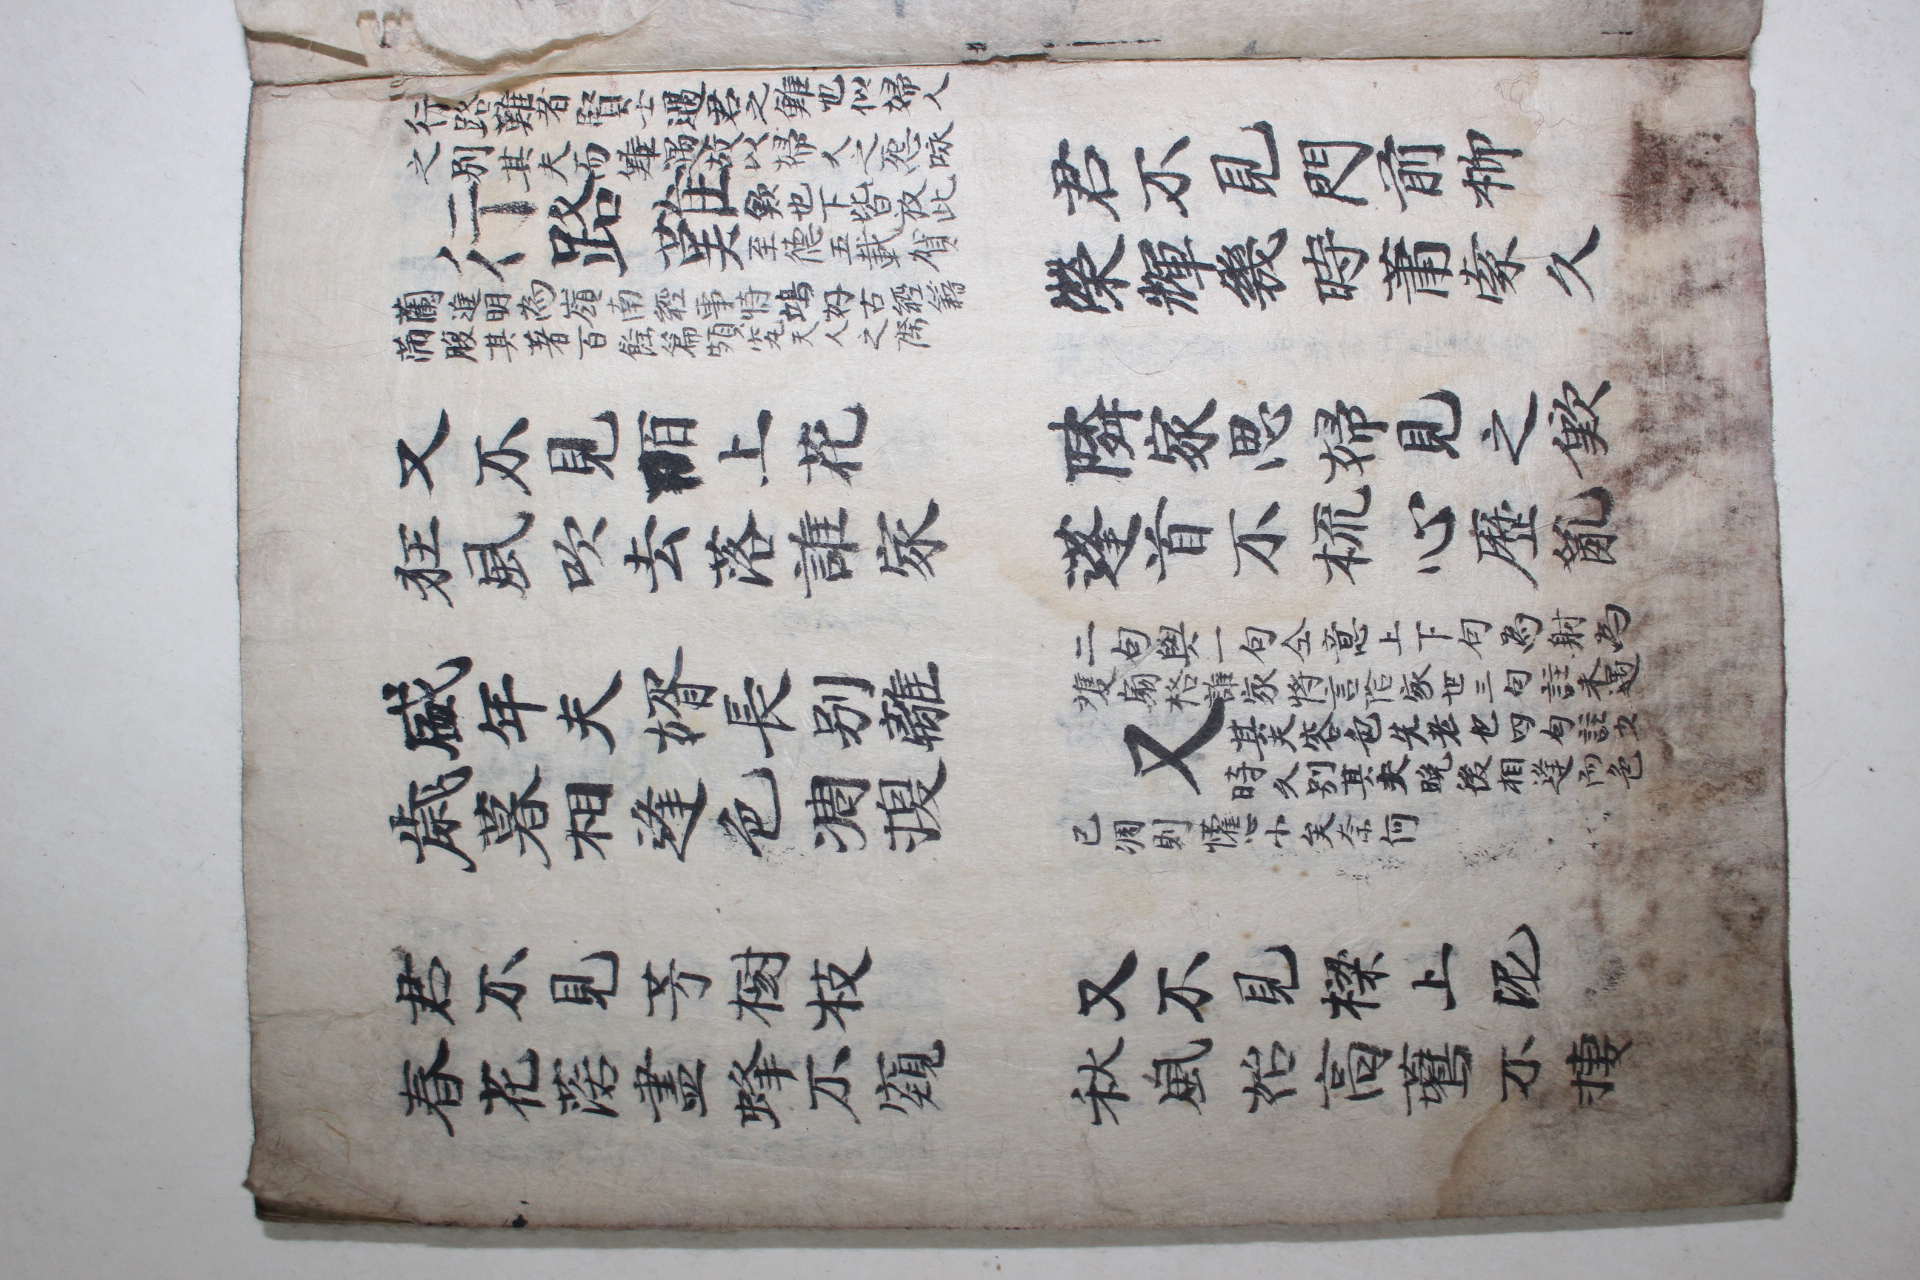 行路難者賢士遇君之難也似婦人
之別其夫而難遇故以婦人之怨咏
行路難
歎也下皆放此
至德五載賀
蘭進明為嶺南經事時鳩好古經籍
滿腹其著百餘篇頗究天人之際
君不見門前柳
榮輝幾時蕭索久
又不見陌上花
狂風吹去落誰家
隣家思婦見之歎
蓬首不梳心歷亂
盛年夫婿長別離
歲暮相逢色凋換
二句與一句仝意上下句為射為
雙扇格誰家將言家也三句註未遇
又
其夫容色先老也四句註少
時久別其夫晚後相逢而色
已凋則懽心小矣奈何
君不見芳樹枝
春花落盡蜂不窺
又不見樑上泥
秋風始高鷰不捿